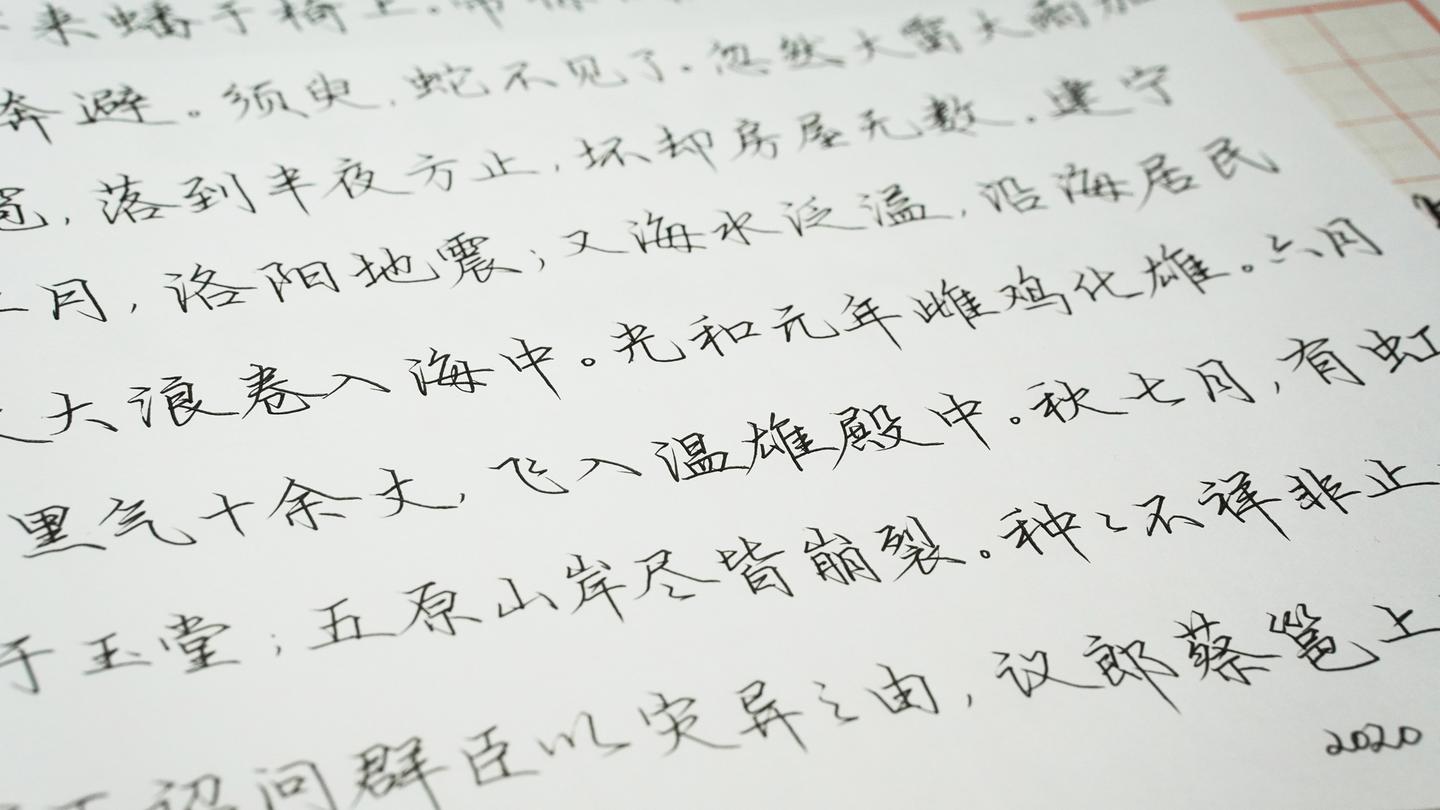 来蟠于椅上。帝惊
奔避。须臾，蛇不见了。忽然大雷大雨加
雹，落到半夜方止，坏却房屋无数。建宁
二月，洛阳地震；又海水泛溢，沿海居民
大浪卷入海中。光和元年雌鸡化雄。六月
黑气十余丈，飞入温雄殿中。秋七月，有虹
于玉堂；五原山岸尽皆崩裂。种々不祥非止
诏问群臣以灾异之由，议郎蔡邕上
2020